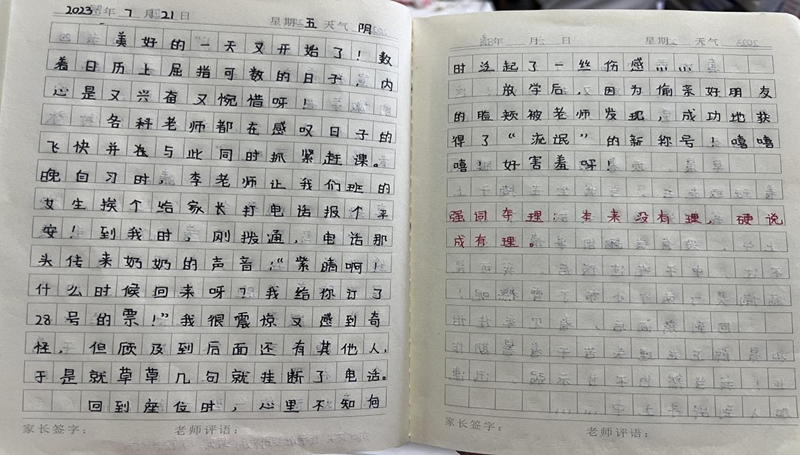 2023年 7月21日 星期五 天气 阴
美好的一天又开始了！数
着日历上屈指可数的日子，内
心是又兴奋又惋惜呀！
各科老师都在感叹日子的
飞快并与此同时抓紧赶课。
晚自习时，李老师让我们班的
女生挨个给家长打电话报个平
安！到我时，刚拨通，电话那
头传来奶奶的声音：“紫晴啊！
什么时候回来呀？我给你订了
28号的票！”我很震惊又感到奇
怪，但顾及到后面还有其他人，
于是就草草几句就挂断了电话。
回到座位时，心里不知何
家长签字： 老师评语：
年 月 日 星期 天气
时泛起了一丝伤感……
放学后，因为偷亲好朋友
的脸颊被老师发现，成功地获
得了“流氓”的新称号！嘻嘻
嘻！好害羞呀！
强词夺理：本来没有理，硬说
成有理。
家长签字： 老师评语：